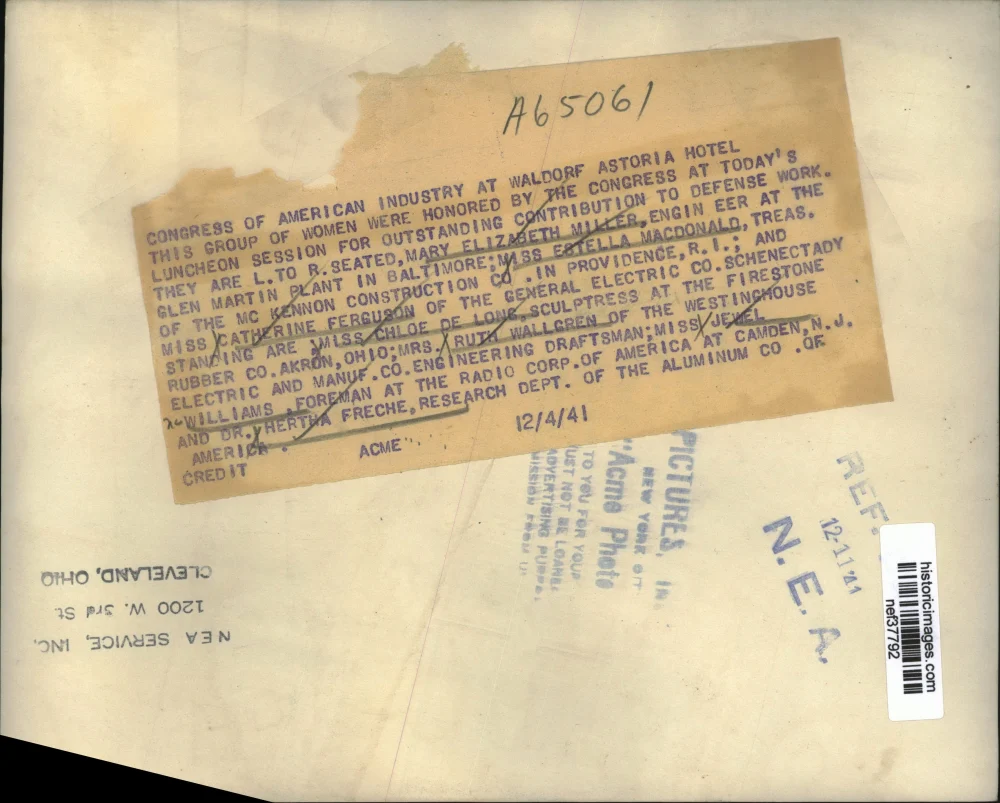 A65061
CONGRESS OF AMERICAN INDUSTRY AT WALDORF ASTORIA HOTEL
THIS GROUP OF WOMEN WERE HONORED BY THE CONGRESS AT TODAY'S
LUNCHEON SESSION FOR OUTSTANDING CONTRIBUTION TO DEFENSE WORK.
THEY ARE L.TO R.SEATED,MARY ELIZABETH MILLER,ENGIN EER AT THE
GLEN MARTIN PLANT IN BALTIMORE;MISS ESTELLA MACDONALD,TREAS.
OF THE MC KENNON CONSTRUCTION CO .IN PROVIDENCE,R.I.; AND
MISS CATHERINE FERGUSON OF THE GENERAL ELECTRIC CO.SCHENECTADY
STANDING ARE ;MISS CHLOE DE LONG,SCULPTRESS AT THE FIRESTONE
RUBBER CO.AKRON,OHIO;MRS. RUTH WALLGREN OF THE WESTINGHOUSE
ELECTRIC AND MANUF.CO.ENGINEERING DRAFTSMAN;MISS JEWEL
WILLIAMS ,FOREMAN AT THE RADIO CORP.OF AMERICA AT CAMDEN,N.J.
AND DR. HERTHA FRECHE,RESEARCH DEPT. OF THE ALUMINUM CO .OF
AMERICA .
CREDIT ACME 12/4/41
PICTURES, IN
NEW YORK
"Acme Photo
TO YOU FOR YOUR
UST NOT BE LOANE
ADVERTISING PURPO
MISSION FROM U
REF.
12-11'41
N. E. A.
NEA SERVICE, INC.
1200 W. 3rd St
CLEVELAND, OHIO
historicimages.com
nef37792